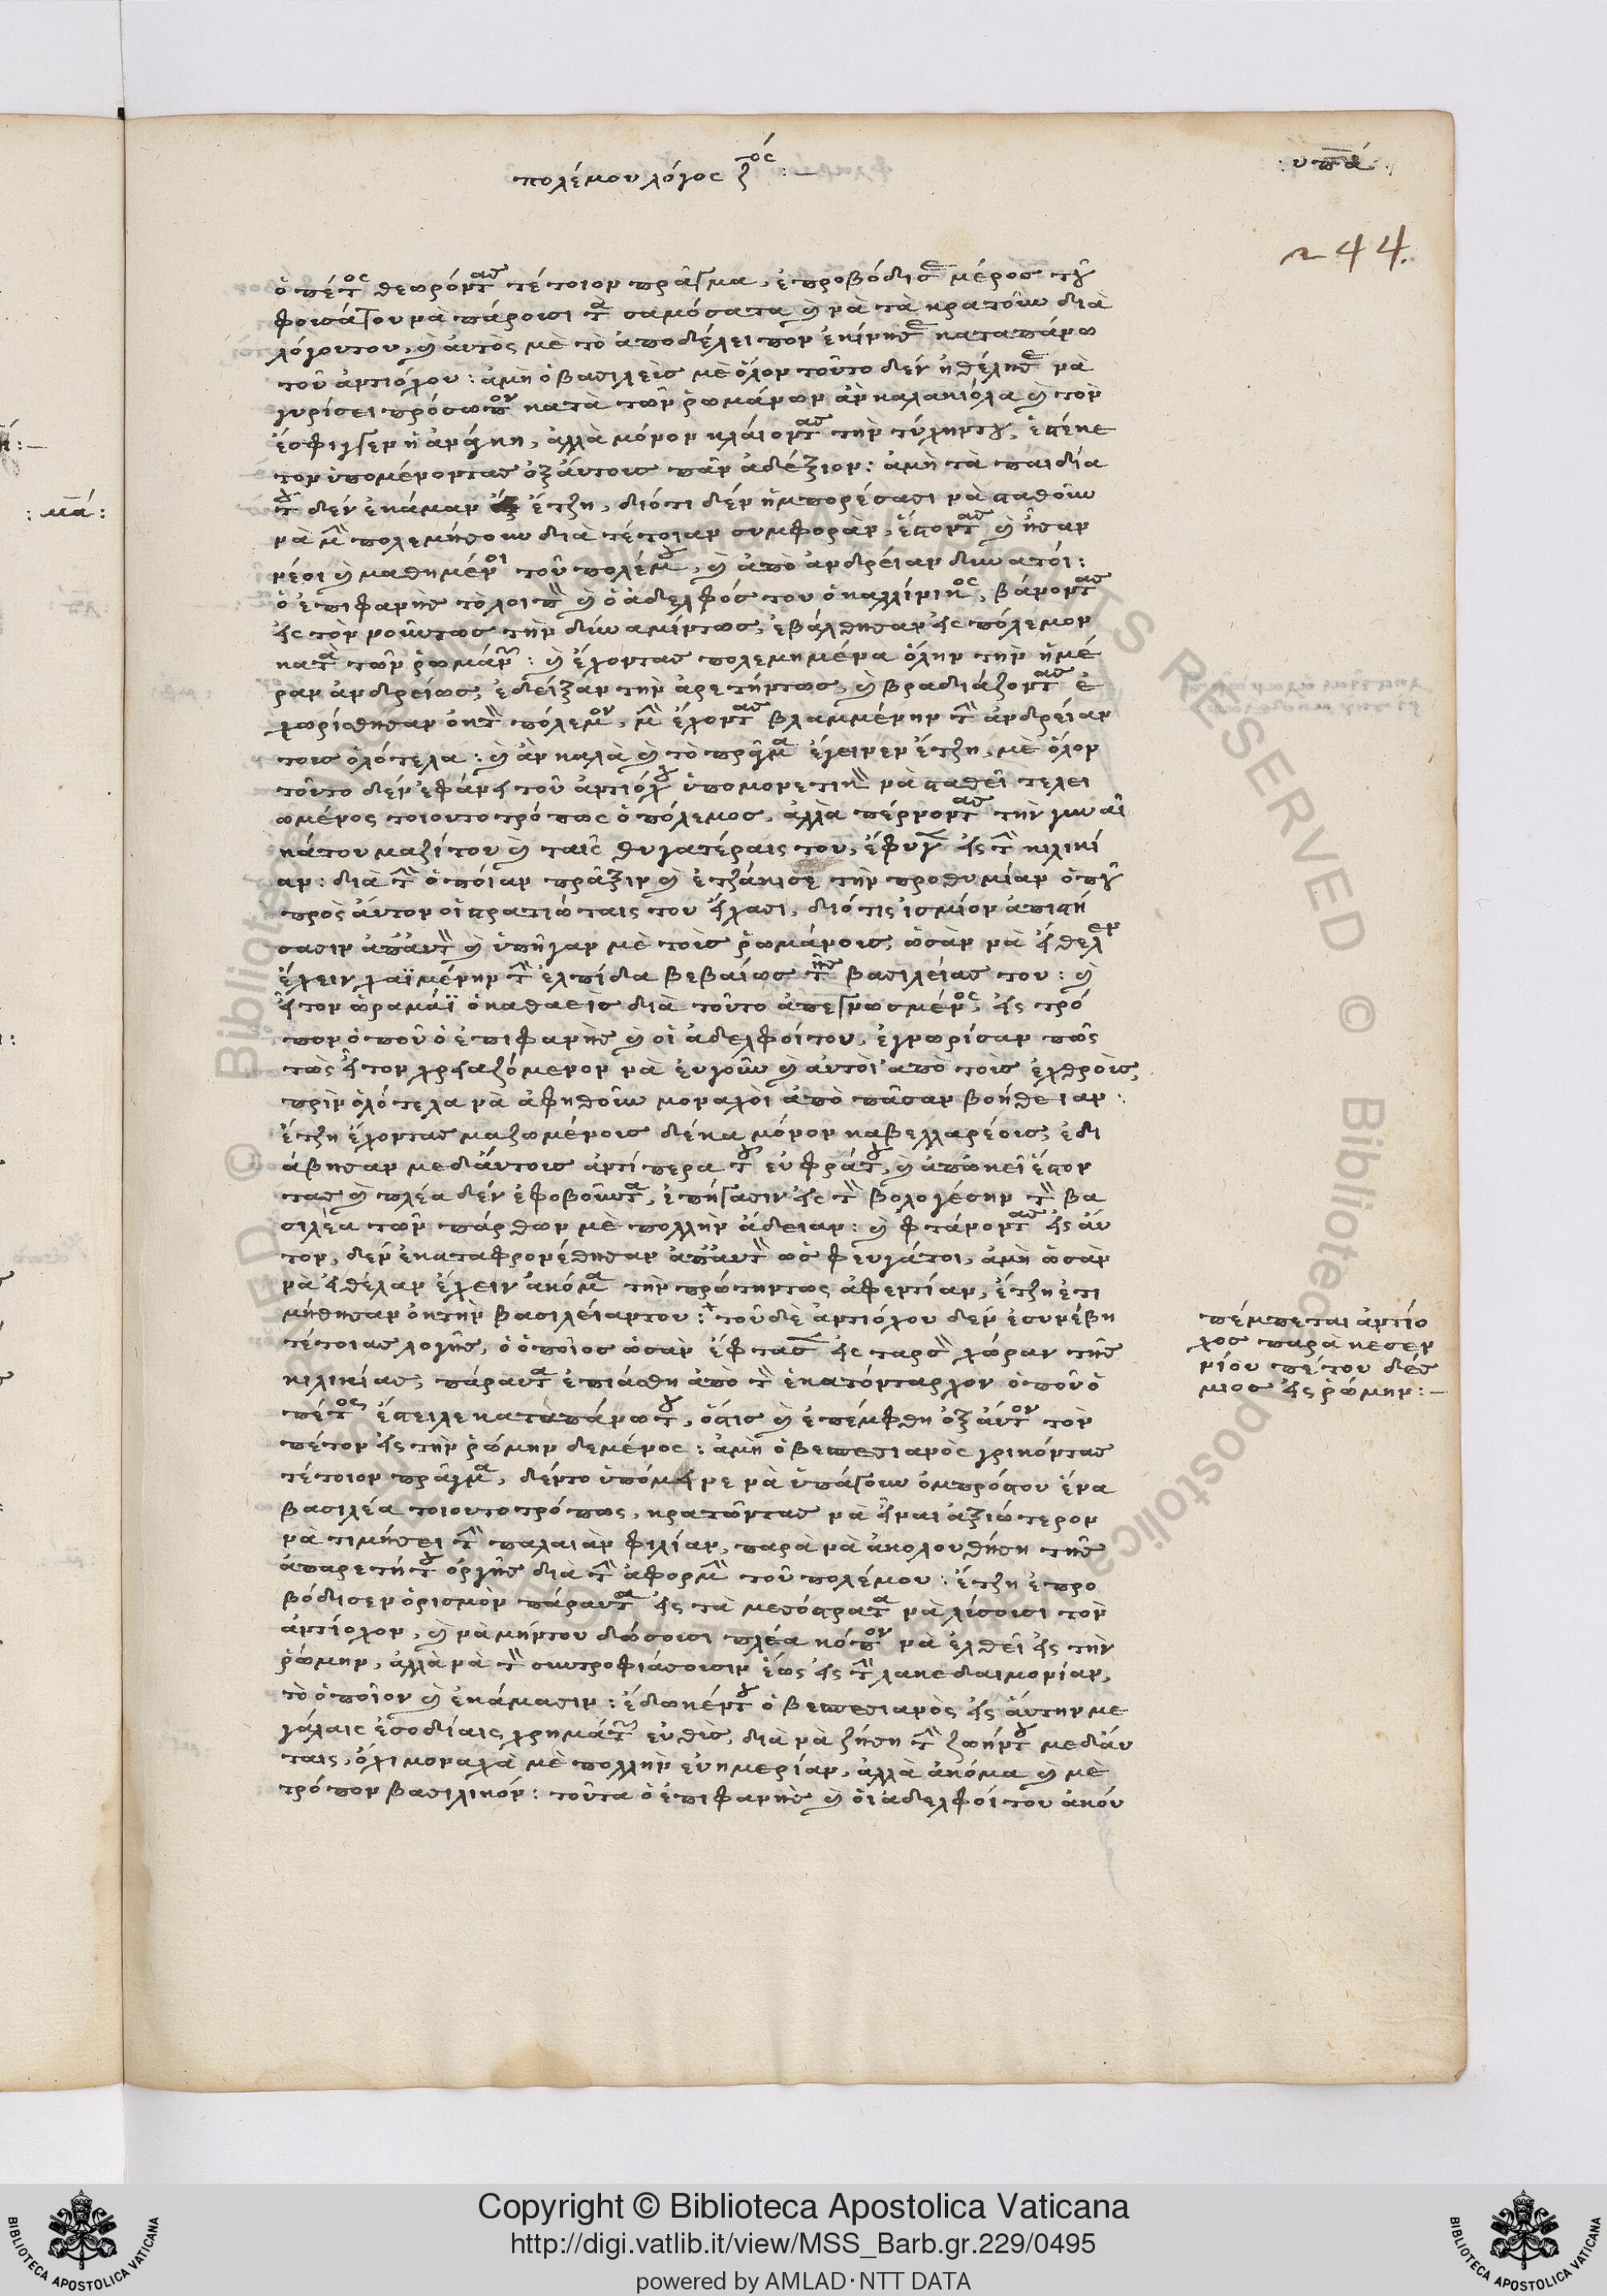 πολέμου λόγος ζ ος :—
: υπα :
244.
ὁ πέτος θεωρόντας τέτοιον πράγμα, ἐπροβόδισε μέρος τοῦ
φοισάτου νὰ πάροισι τὰ σαμόσατα καὶ νὰ τὰ κρατοῦν διὰ
λόγουτου, καὶ ἀυτὸς μὲ τὸ ἀποδέλει πον ἐκίνησε καταπάνω
τοῦ ἀντιόχου : ἀμὴ ὁ βασιλεὶς μὲ ὅλον τοῦτο δὲν ἠθέλησε νὰ
γυρίσει πρόσωπον κατὰ τῶν ῥωμάνων ἀν καλακιόλα καὶ τὸν
ἔσφιγγεν ἡ ἀνάγκη, ἀλλὰ μόνον κλάιοντας τὴν τύχηντου, ἔστεκε
τον ὑπομένοντας ὀξάυτοις πᾶν ἀδέξιον : ἀμὴ τὰ παιδία
του δὲν ἐκάμαν ἔτζη, διότι δὲν ἠμπορέσασι νὰ σταθοῦν
νὰ μὴν πολεμήσουν διὰ τέτοιαν συμφορὰν, ἔστοντας καὶ ἦσαν
νέοι καὶ μαθημένοι τοῦ πολέμου, καὶ ἀπὸ ἀνδρείαν δυνατόι :
ὁ ἐπιφανὴς τὸ λοιπὸν καὶ ὁ ἀδελφός του ὁ καλλίνικος, βάνοντας
εἰς τὸν νοῦντως τὴν δύναμίντως, ἐβάλθησαν εἰς πόλεμον
κατὰ τῶν ῥωμάνων : καὶ ἔχοντας πολεμημένα ὅλην τὴν ἡμέ
ραν ἀνδρείως, ἐδείξαν τὴν ἀρετήντως, καὶ βραδιάζοντας ἐ
χωρίσθησαν ὀκτὸν πόλεμον, μὴν ἔχοντας βλαμμένην τὴν ἀνδρείαν
τοις ὁλότελα : καὶ ἀν καλὰ καὶ τὸ πράγμα ἔγεινεν ἔτζη, μὲ ὅλον
τοῦτο δὲν ἐφάνει τοῦ ἀντιόχου ὑπομονετικὸν νὰ σταθεῖ τελει
ωμένος τοιουτοτρόπως ὁ πόλεμος, ἀλλὰ πέρνοντας τὴν γυναῖ
κάτου μαζίτου καὶ ταῖς θυγατέραις του, ἔφυγεν εἰς τὴν κιλικί
αν : διὰ τὴν ὁποίαν πράξιν καὶ ἐτζάκισε τὴν προθυμίαν ὁποῦ
πρὸς ἀυτον οἱ στρατιώταις του εἴχασι, διότις ἰσμίον ἀποστή
σασιν ἀπαυτὸν καὶ ὑπῆγαν μὲ τοὶς ῥωμάνοις, ὡσὰν νὰ εἴθελεν
ἔχειν χαϊμένην τὴν ἐλπίδα βεβαίως τῆς βασιλείας του : καὶ
εἶτον ὡραμάϊ ὁ καθαεὶς διὰ τοῦτο ἀπεγνωσμένος, εἰς τρό
πον ὁποῦ ὁ ἐπιφανὴς καὶ οἱ ἀδελφοίτου, ἐγνωρίσαν πῶς
τὼς εἶτον χρειαζόμενον νὰ ἐυγοῦν καὶ ἀυτοὶ ἀπὸ τοὶς ἐχθροὶς,
πρὶν ὁλότελα νὰ ἀφηθοῦν μοναχοὶ ἀπὸ πᾶσαν βοήθειαν :
ἔτζη ἔχοντας μαζωμένοις δέκα μόνον καβελλαρέοις, ἐδι
άβησαν μεδάυτοις ἀντίπερα τοῦ εὐφράτου, καὶ ἀπὠκεῖ ἔστον
τας καὶ πλέα δὲν ἐφοβοῦντα, ἐπήγασιν εἰς τὸν βολογέσην τὸν βα
σιλέα τῶν πάρθων μὲ πολλὴν ἄδειαν : καὶ φτάνοντας εἰς ἀυ
τον, δὲν ἐκαταφρονέθησαν ἀπαυτὸν ὡς φευγάτοι, ἀμὴ ὡσὰν
νὰ εἰθέλαν ἔχειν ἀκόμα τὴν πρώτηντως ἀφεντίαν, ἔτζη ἐτι
μήθησαν ὀκτὴν βασιλείαντου : + τοῦ δὲ ἀντιόχου δὲν ἐσυνέβη
τέτοιας λογῆς, ὁ ὁποῖος ὡσὰν ἔφτασεν εἰς ταρσὸν χώραν τῆς
κιλικίας, πάραυτα ἐπιάσθη ἀπὸ τὸν ἑκατόνταρχον ὁποῦ ὁ
πέτος ἔστειλε καταπάνωτου, ὅστις καὶ ἐπέμφθη ὀξ ἀυτὸν τὸν
πέτον εἰς τὴν ῥώμην δεμένος : ἀμὴ ὁ βεσπεσιανὸς γρικόντας
τέτοιον πράγμα, δέντο ὑπόμεινε νὰ ὑπάγουν ὀμπρόστου ἕνα
βασιλέα τοιουτοτρόπως, κρατῶντας νὰ εἶναι ἀξιώτερον
νὰ τιμήσει τὴν παλαιὰν φιλίαν, παρὰ νὰ ἀκολουθήση τῆς
ἀπαρετήτου ὀργῆς διὰ τὴν ἀφορμὴν τοῦ πολέμου : ἔτζη ἐπρο
βόδισεν ὁρισμὸν πάραυτα εἰς τὰ μεσόστρατα νὰ λύσοισι τὸν
ἀντίοχον, καὶ νὰ μήντου δώσοισι πλέα κόπον νὰ ἐλθεῖ εἰς τὴν
ῥώμην, ἀλλὰ νὰ τὸν συντροφιάσοισιν ἕως εἰς τὴν λακεδαιμονίαν,
τὸ ὁποῖον καὶ ἐκάμασιν : ἔδωκέντου ὁ βεσπεσιανὸς εἰς ἀυτην με
γάλαις ἐσοδίαις χρημάτων εὐθὶς, διὰ νὰ ζήση τὴν ζωήντου μεδάυ
ταις, ὄχι μοναχὰ μὲ πολλὴν εὐημερίαν, ἀλλὰ ἀκόμα καὶ μὲ
τρόπον βασιλικόν : τοῦτα ὁ ἐπιφανὴς καὶ ὁι ἀδελφόι του ἀκού
πέμπεται ἀντίο
χος παρὰ κεσεν
νίου πέτου δέσ
μιος εἰς ῥώμην :—
: μα :
Copyright © Biblioteca Apostolica Vaticana
http://digi.vatlib.it/view/MSS_Barb.gr.229/0495
powered by AMLAD·NTT DATA
BIBLIOTECA APOSTOLICA VATICANA
BIBLIOTECA APOSTOLICA VATICANA